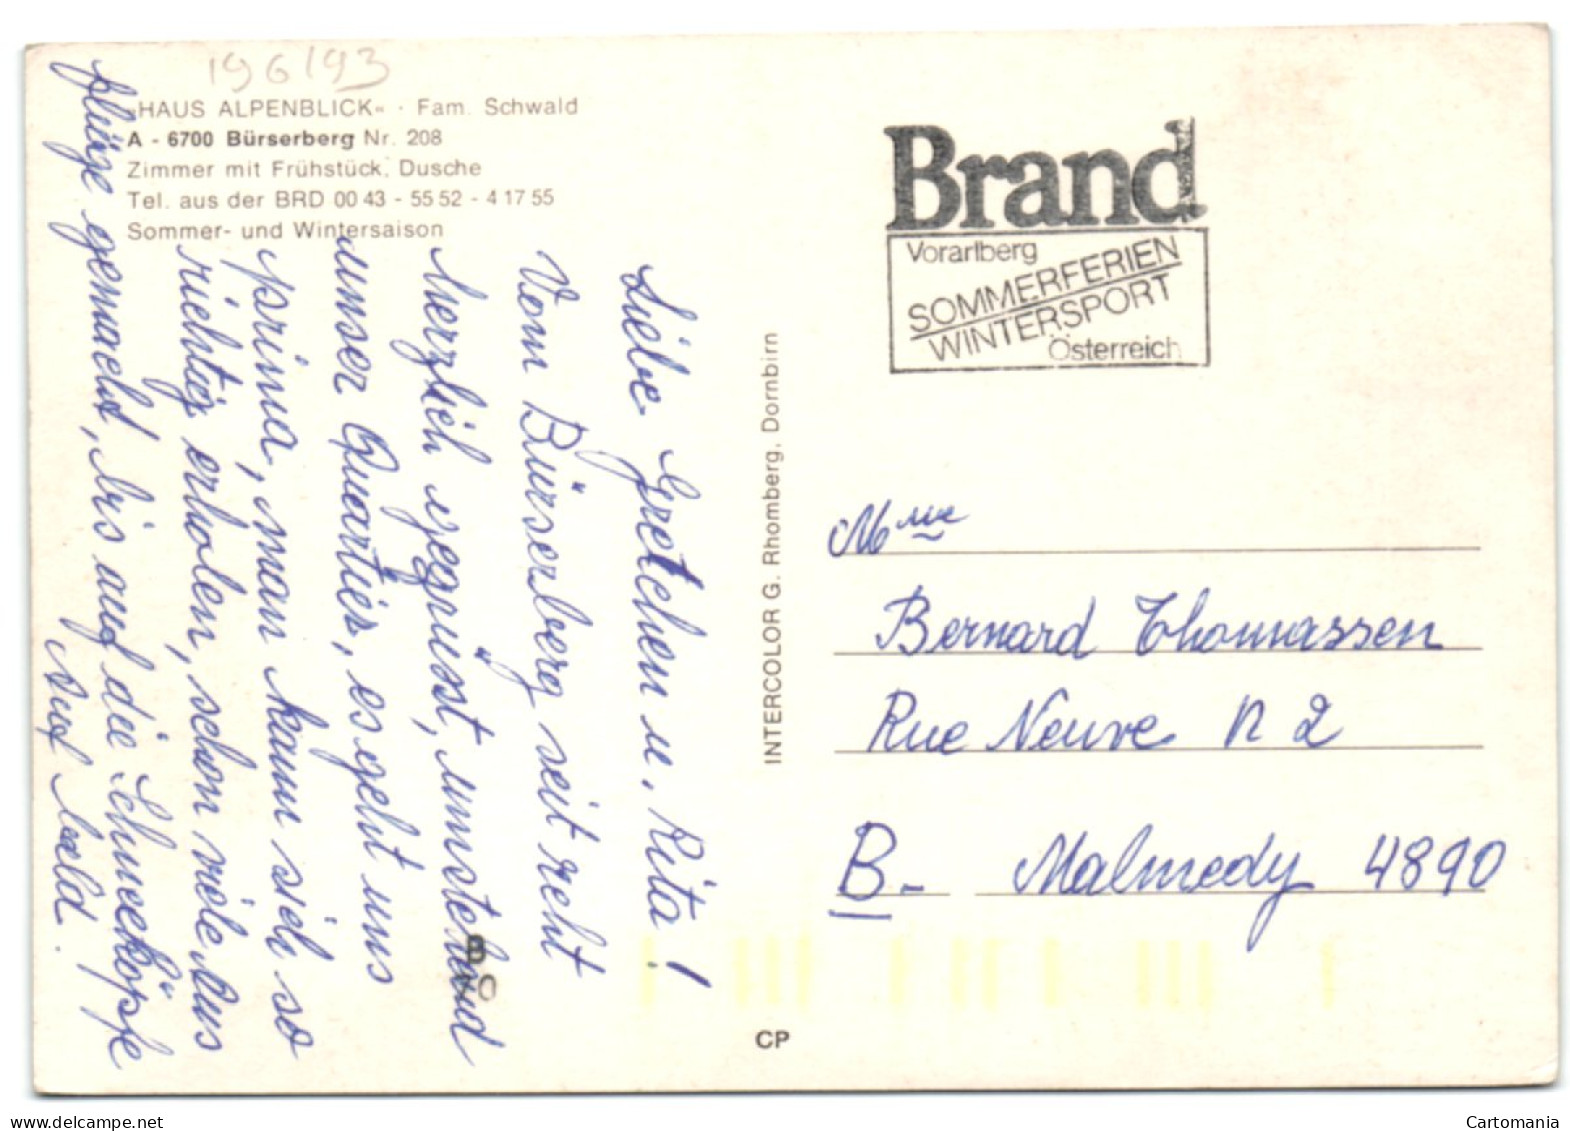 196193
"HAUS ALPENBLICK« · Fam. Schwald
A - 6700 Bürserberg Nr. 208
Zimmer mit Frühstück, Dusche
Tel. aus der BRD 00 43 - 55 52 - 4 17 55
Sommer- und Wintersaison
Liebe Gretchen u. Rita!
Vom Bürserberg seit recht
herzlich gegrüsst, umstehend
unser Quartier, es geht uns
prima, man kann sich so
richtig erholen, schon viele Aus
flüge gemacht, bis auf die Schneeköpfe
Auf bald.
INTERCOLOR G. Rhomberg, Dornbirn
CP
Brand
Vorarlberg
SOMMERFERIEN
WINTERSPORT
Österreich
Mme
Bernard Thomassen
Rue Neuve n 2
B- Malmedy 4890
delcampe.net
Cartomania